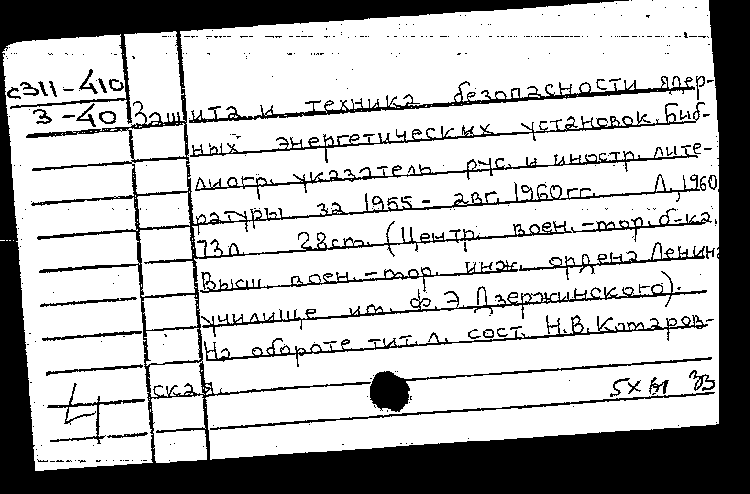 с311-410
З-40
Защита и техника безопасности ядер-
ных энергетических установок. Биб-
лиогр. указатель рус. и иностр. лите-
ратуры за 1955 - авг. 1960гг. Л., 1960.
73л. 28см. (Центр. воен.-мор. б-ка.
Высш. воен.-мор. инж. ордена Ленина
училище им. Ф.Э.Дзержинского).
На обороте тит. л. сост. Н.В.Комаров-
ская.
4